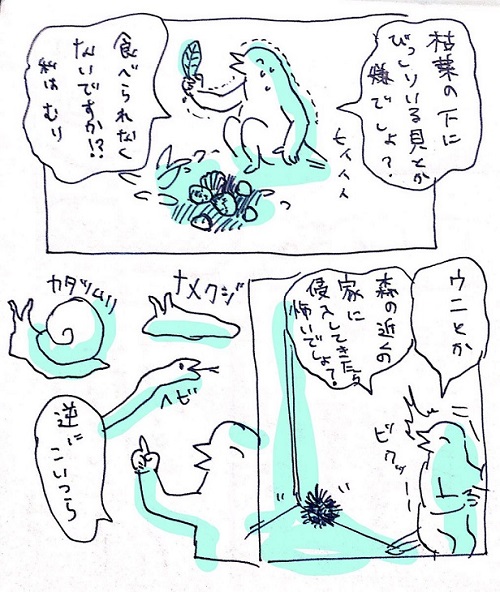 枯葉の下に
びっしりいる貝とか
嫌でしょ?
ヒィィィ
食べられなく
ないですか!?
私は むり
ウニとか
森の近くの
家に
侵入してきたら
怖いでしょ?
ビクッ
カタツムリ
ナメクジ
ヘビ
逆に
こいつら